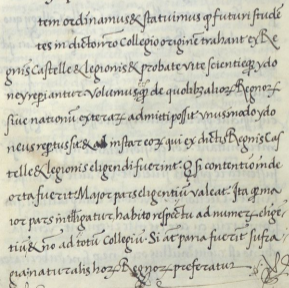 tem ordinamus & statuimus q̃ futuri stude
tes in dicto nr̃o Collegio origine trahant ex Re
gnis Castelle & legionis & probate vite scientieq̃ ydo
ney repiantur Volumusq̃ de quolibz alioȝ Regnoȝ
siue nationũ exteraȝ admitti possit vnus modo ydo
neus reptus sit & ad instar eoȝ qui ex dictis Regnis Cas
telle & legionis eligendi fuerint. Q̃ si contentio inde
orta fuerit Maior pars eligentiũ valeat. Ita q̃ ma
ior pars intelligatur habito respectu ad numeȝ elige
tiũ & nõ ad totũ Collegiũ. Si aut paria fuerĩt sufra
gia naturalis hoȝ Regnoȝ preferatur